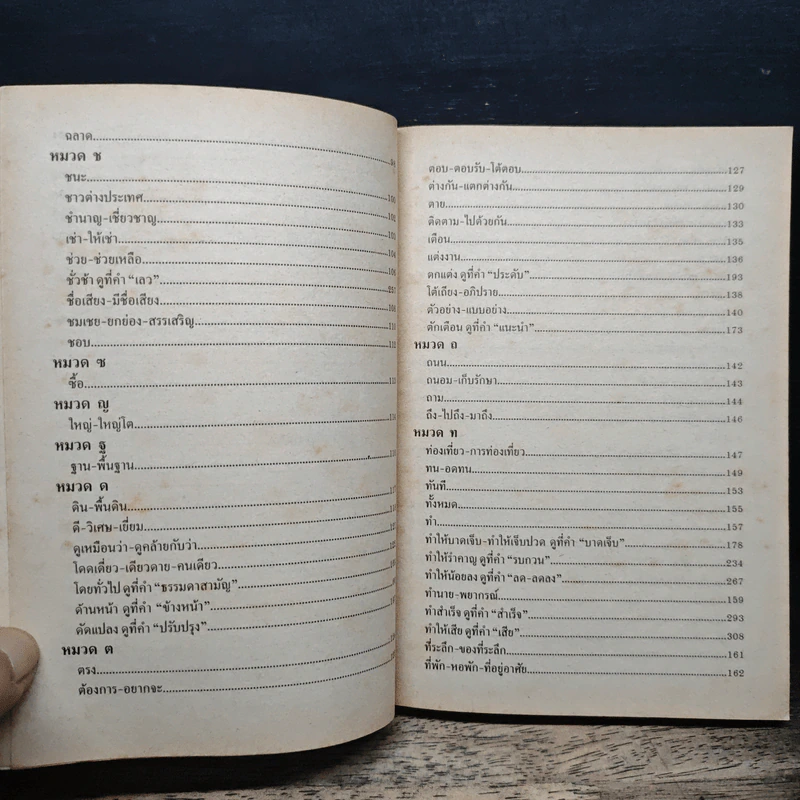 ฉลาด
หมวด ช
ชนะ
ชาวต่างประเทศ
ชำนาญ-เชี่ยวชาญ
เช่า-ให้เช่า
ช่วย-ช่วยเหลือ
ชั่วช้า ดูที่คำ “เลว”
ชื่อเสียง-มีชื่อเสียง
ชมเชย-ยกย่อง-สรรเสริญ
ชอบ
หมวด ซ
ซื้อ
หมวด ญ
ใหญ่-ใหญ่โต
หมวด ฐ
ฐาน-พื้นฐาน
หมวด ด
ดิน-พื้นดิน
ดี-วิเศษ-เยี่ยม
ดูเหมือนว่า-ดูคล้ายกับว่า
โดดเดี่ยว-เดียวดาย-คนเดียว
โดยทั่วไป ดูที่คำ “ธรรมดาสามัญ”
ด้านหน้า ดูที่คำ “ข้างหน้า”
ดัดแปลง ดูที่คำ “ปรับปรุง”
หมวด ต
ตรง
ต้องการ-อยากจะ
ตอบ-ตอบรับ-โต้ตอบ 127
ต่างกัน-แตกต่างกัน 129
ตาย 130
ติดตาม-ไปด้วยกัน 133
เตือน 135
แต่งงาน 136
ตกแต่ง ดูที่คำ “ประดับ” 193
โต้เถียง-อภิปราย 138
ตัวอย่าง-แบบอย่าง 140
ตักเตือน ดูที่คำ “แนะนำ” 173
หมวด ถ
ถนน 142
ถนอม-เก็บรักษา 143
ถาม 144
ถึง-ไปถึง-มาถึง 146
หมวด ท
ท่องเที่ยว-การท่องเที่ยว 147
ทน-อดทน 149
ทันที 153
ทั้งหมด 155
ทำ 157
ทำให้บาดเจ็บ-ทำให้เจ็บปวด ดูที่คำ “บาดเจ็บ” 178
ทำให้รำคาญ ดูที่คำ “รบกวน” 234
ทำให้น้อยลง ดูที่คำ “ลด-ลดลง” 267
ทำนาย-พยากรณ์ 159
ทำสำเร็จ ดูที่คำ “สำเร็จ” 293
ทำให้เสีย ดูที่คำ “เสีย” 308
ที่ระลึก-ของที่ระลึก 161
ที่พัก-หอพัก-ที่อยู่อาศัย 162